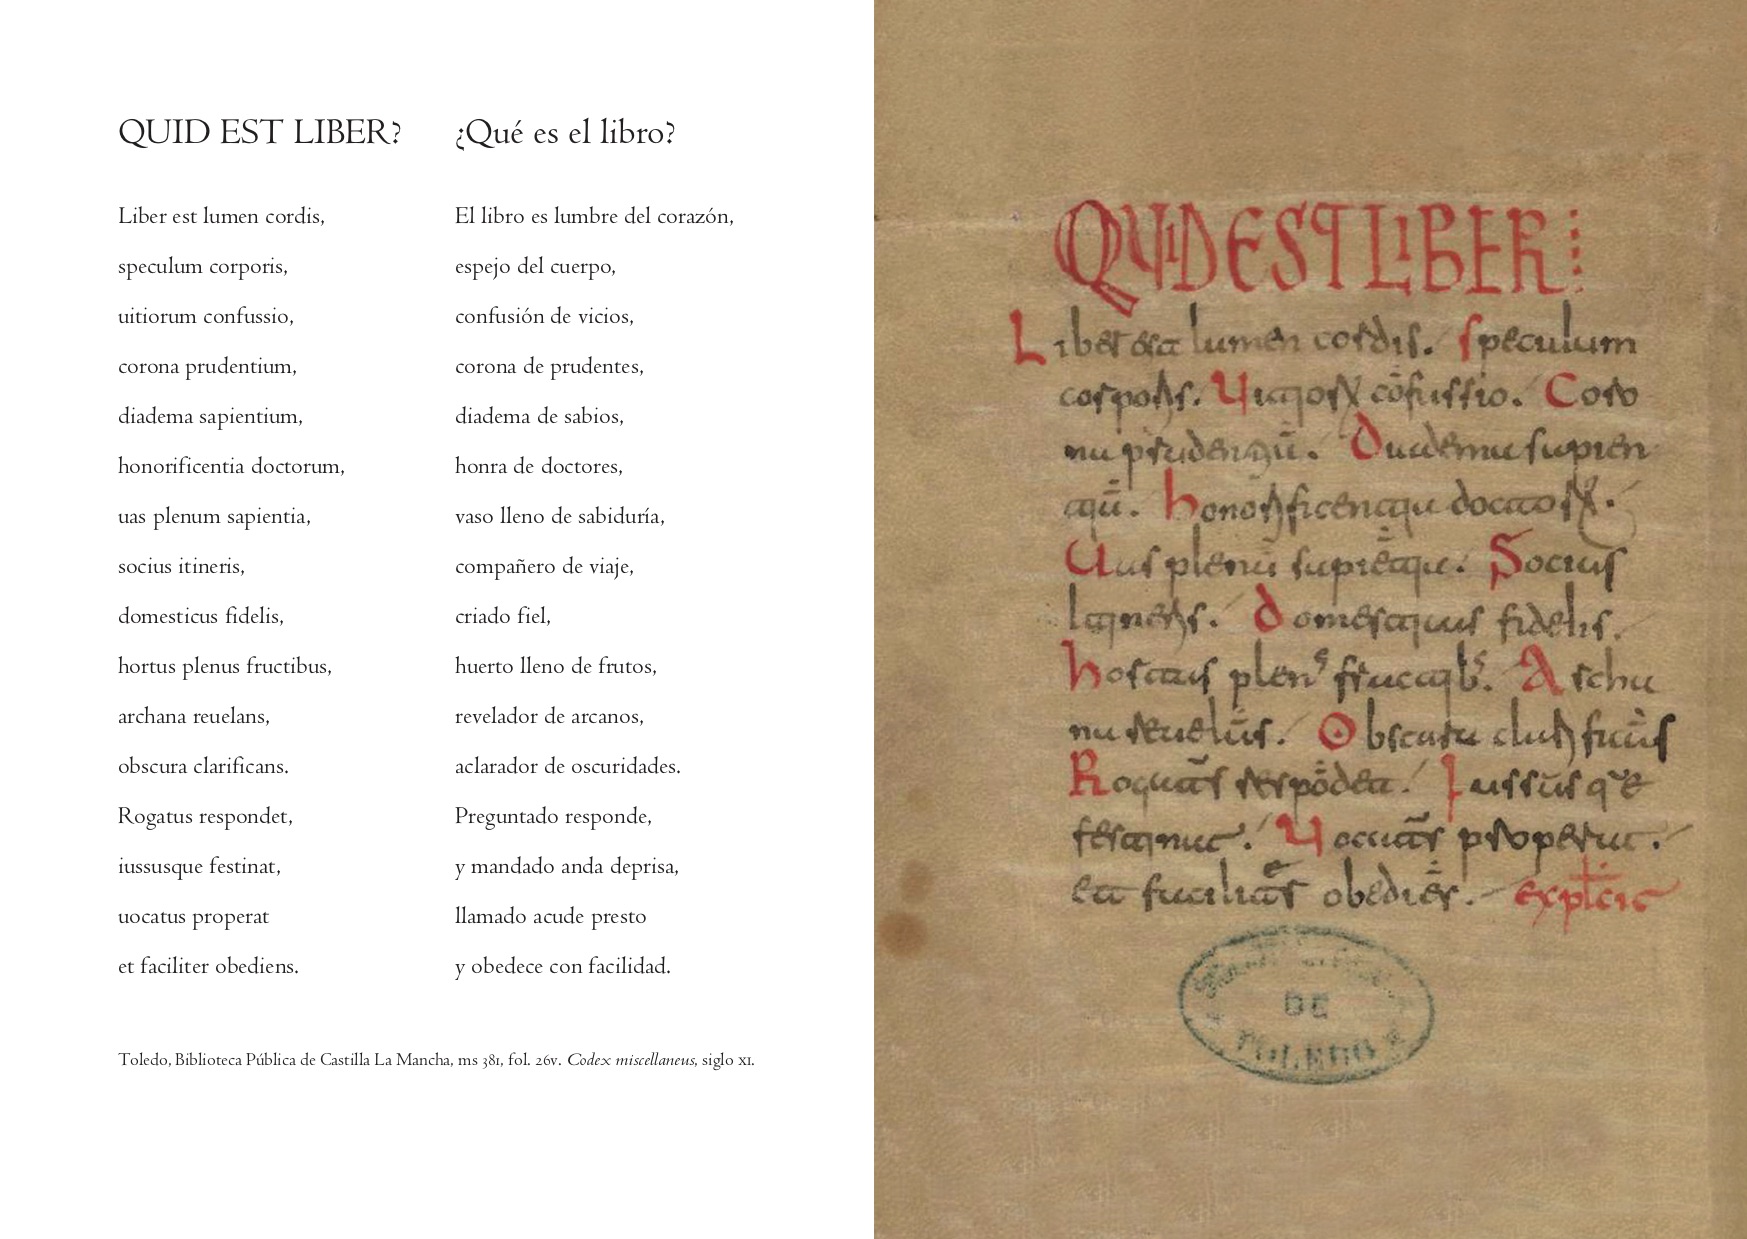 QUID EST LIBER?
Liber est lumen cordis,
speculum corporis,
uitiorum confussio,
corona prudentium,
diadema sapientium,
honorificentia doctorum,
uas plenum sapientia,
socius itineris,
domesticus fidelis,
hortus plenus fructibus,
archana reuelans,
obscura clarificans.
Rogatus respondet,
iussusque festinat,
uocatus properat
et faciliter obediens.
¿Qué es el libro?
El libro es lumbre del corazón,
espejo del cuerpo,
confusión de vicios,
corona de prudentes,
diadema de sabios,
honra de doctores,
vaso lleno de sabiduría,
compañero de viaje,
criado fiel,
huerto lleno de frutos,
revelador de arcanos,
aclarador de oscuridades.
Preguntado responde,
y mandado anda deprisa,
llamado acude presto
y obedece con facilidad.
Toledo, Biblioteca Pública de Castilla La Mancha, ms 381, fol. 26v. Codex miscellaneus, siglo XI.
QUID EST LIBER
Liber est lumen cordis. speculum
corporis. Uitiorum confussio. Coro
na prudentium. Diadema sapien
tium. honorificentia doctorum.
Uas plenum sapientia. Socius
itineris. domesticus fidelis.
hortus plenus fructibus. Archa
na reuelans. Obscura clarificans
Rogatus respondet. Iussusque
festinat. Uocatus properat.
et faciliter obediens. explicit
DE
TOLEDO